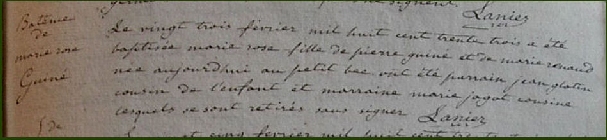 Lanier
Batême
de
marie rose
Guiné
Le vingt trois février mil huit cent trente trois a été
baptisée marie rose fille de pierre guiné et de marie
née aujourd'hui au petit bec ont été parrain jean
cousin de l'enfant et marraine marie jagot cousine
lesquels se sont retirés sans signer Lanier
et cinq février mil huit cent trente